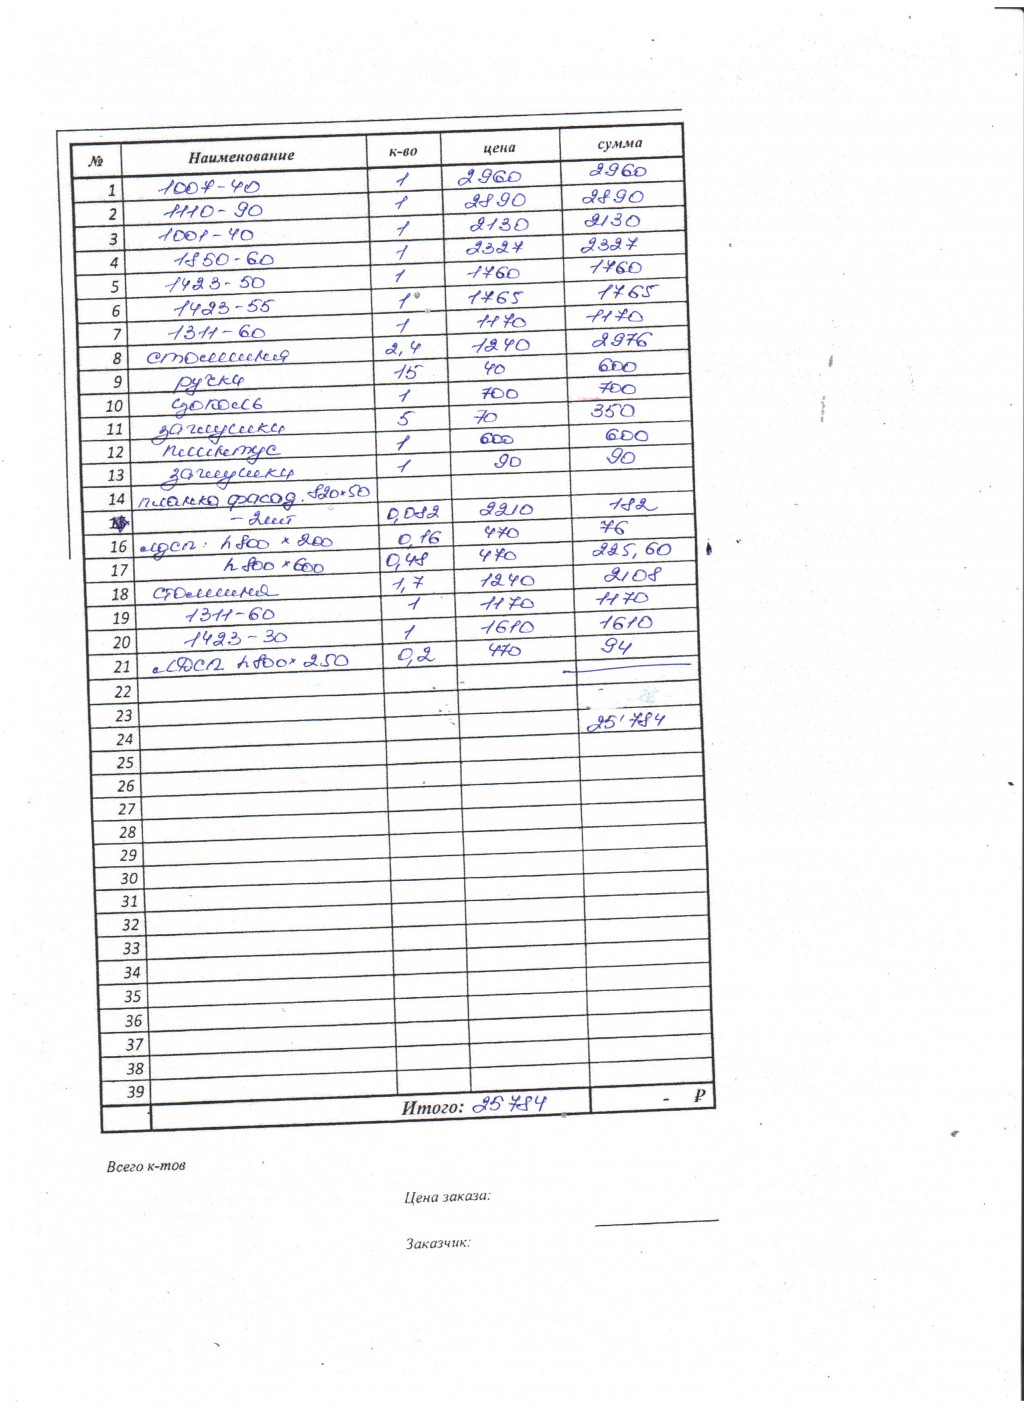 № Наименование к-во цена сумма
1 1007-40 1 2960 2960
2 1110-90 1 2890 2890
3 1001-40 1 2130 2130
4 1850-60 1 2327 2327
5 1423-50 1 1760 1760
6 1423-55 1 1765 1765
7 1311-60 1 1170 1170
8 столешня 2,4 1240 2976
9 ручки 15 40 600
10 цоколь 1 700 700
11 заглушки 5 70 350
12 плинтус 1 600 600
13 заглушки 1 90 90
14 планка фасад. 820×50
- 2шт 0,082 2210 182
16 лдсп: h800 × 200 0,16 470 76
17 h800 × 600 0,48 470 225,60
18 столешня 1,7 1240 2108
19 1311-60 1 1170 1170
20 1423-30 1 1610 1610
21 лдсп h800× 250 0,2 470 94
22
23 25'784
24
25
26
27
28
29
30
31
32
33
34
35
36
37
38
39
Итого: 25784 - ₽
Всего к-тов
Цена заказа:
Заказчик: